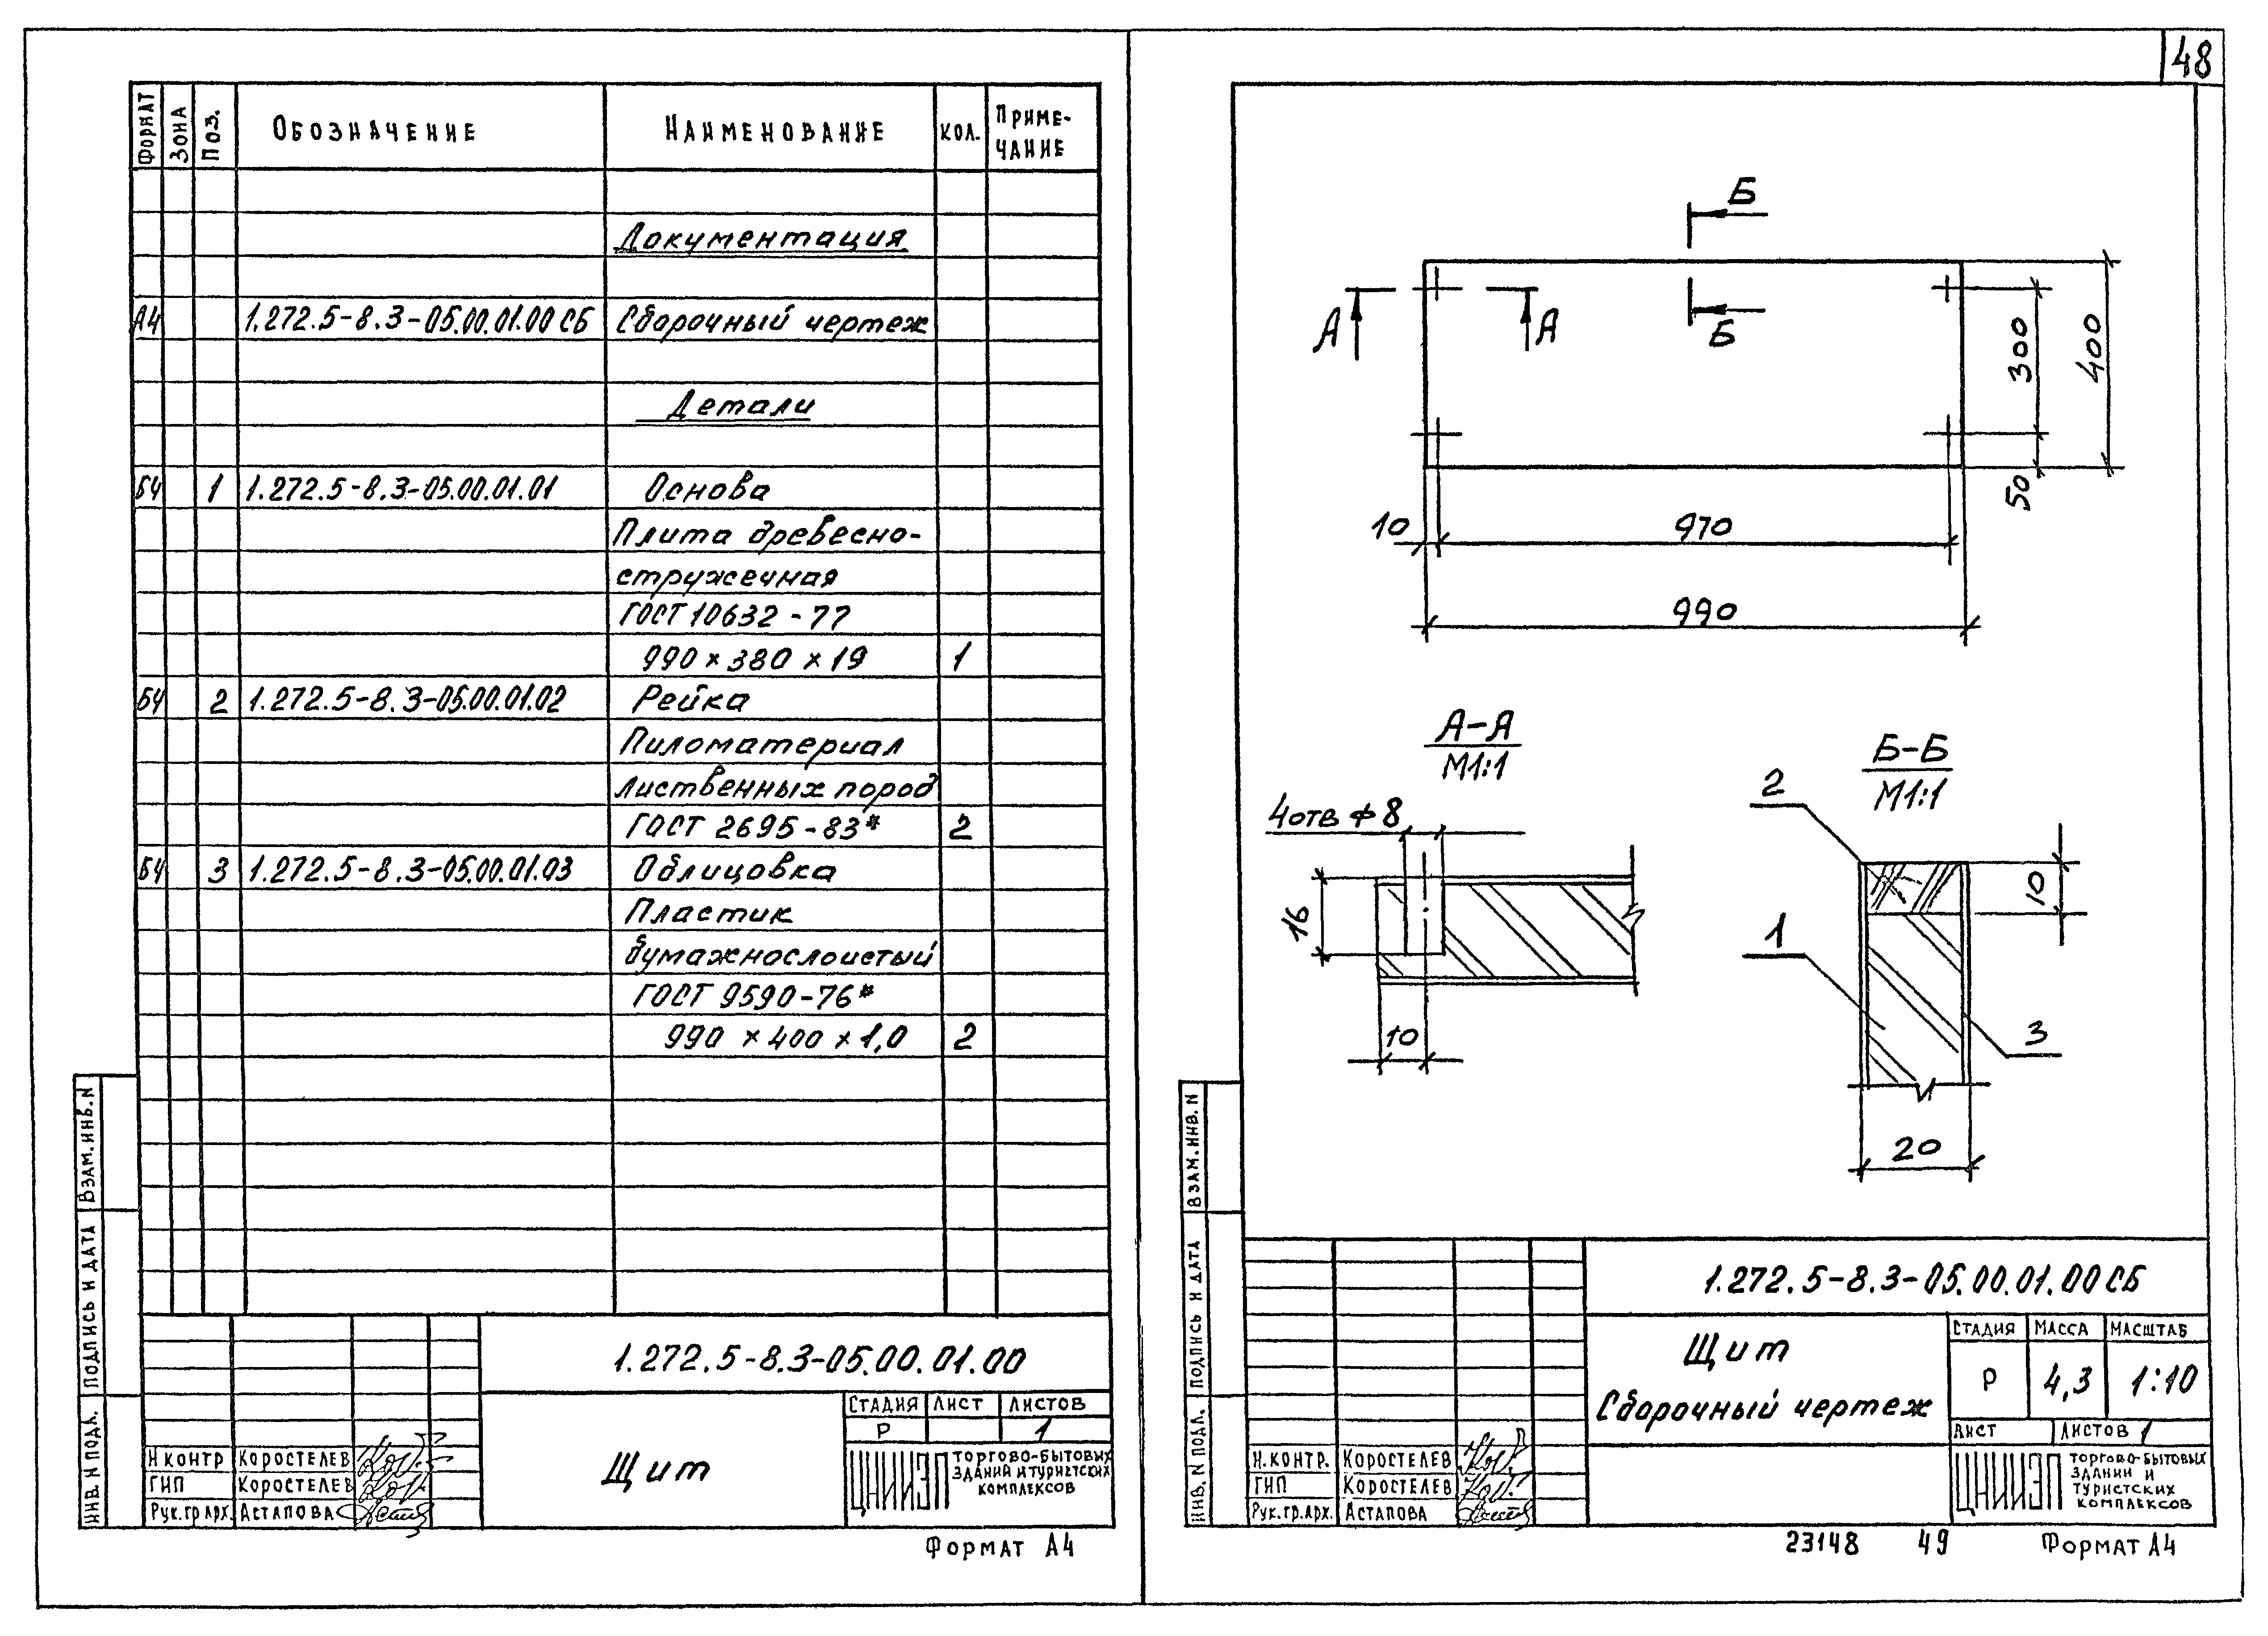 48
ФОРМАТ ЗОНА ПОЗ. ОБОЗНАЧЕНИЕ НАИМЕНОВАНИЕ КОЛ. ПРИМЕ-
ЧАНИЕ
Документация
А4 1.272.5-8.3-05.00.01.00 СБ Сборочный чертеж
Детали
Б4 1 1.272.5-8.3-05.00.01.01 Основа
Плита древесно-
стружечная
ГОСТ 10632-77
990 × 380 × 19 1
Б4 2 1.272.5-8.3-05.00.01.02 Рейка
Пиломатериал
лиственных пород
ГОСТ 2695-83* 2
Б4 3 1.272.5-8.3-05.00.01.03 Облицовка
Пластик
бумажнослоистый
ГОСТ 9590-76*
990 × 400 × 1,0 2
ВЗАМ.ИНВ.N
ПОДПИСЬ И ДАТА
ИНВ. N ПОДЛ.
1.272.5-8.3-05.00.01.00
Щит
СТАДИЯ ЛИСТ ЛИСТОВ
Р 1
Н КОНТР КОРОСТЕЛЕВ
ГИП КОРОСТЕЛЕВ
РУК.ГР АРХ. АСТАПОВА
ЦНИИЭП
ТОРГОВО-БЫТОВЫХ
ЗДАНИЙ И ТУРИСТСКИХ
КОМПЛЕКСОВ
ФОРМАТ А4
Б
Б
А
А
300
400
50
10
970
990
А-А
М1:1
4отв ф 8
16
10
Б-Б
М1:1
2
1
3
10
20
ВЗАМ.ИНВ. N
ПОДПИСЬ И ДАТА
ИНВ. N ПОДЛ.
1.272.5-8.3-05.00.01.00 СБ
Щит
Сборочный чертеж
СТАДИЯ МАССА МАСШТАБ
Р 4,3 1:10
ЛИСТ ЛИСТОВ 1
Н.КОНТР. КОРОСТЕЛЕВ
ГИП КОРОСТЕЛЕВ
РУК.ГР.АРХ. АСТАПОВА
ЦНИИЭП
ТОРГОВО-БЫТОВЫХ
ЗДАНИЙ И
ТУРИСТСКИХ
КОМПЛЕКСОВ
23148 49 ФОРМАТ А4